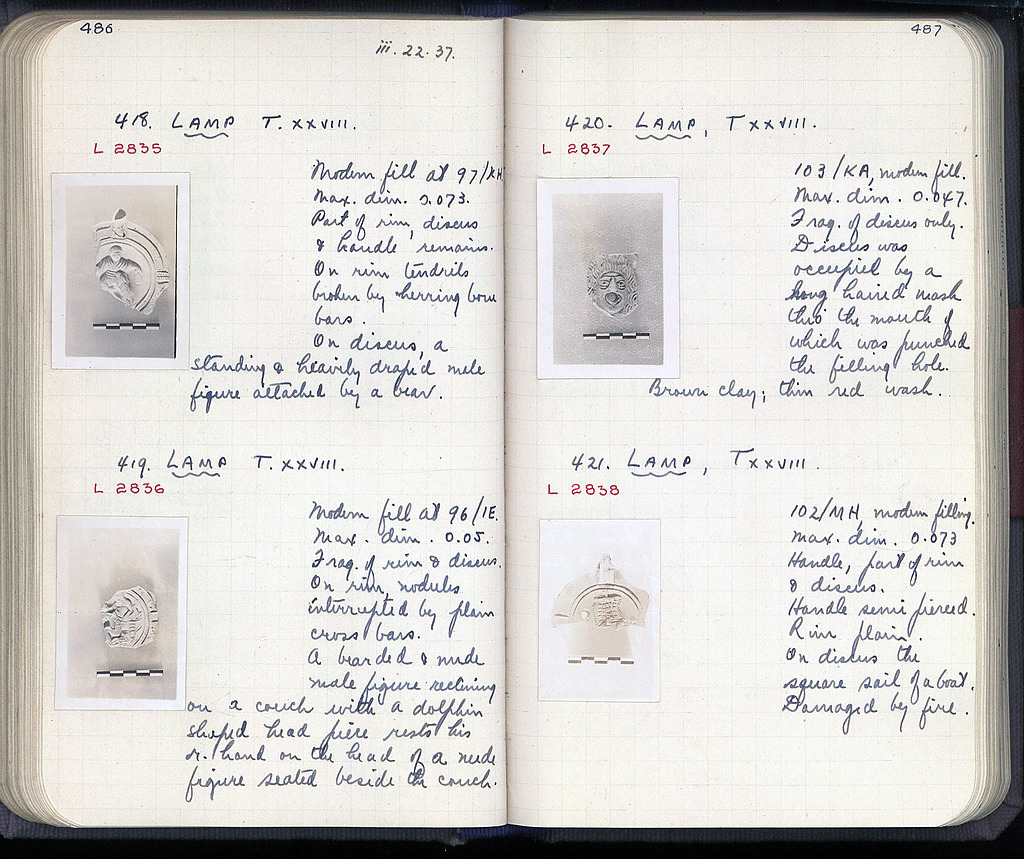 486
iii. 22. 37.
418. LAMP T. XXVIII.
L 2835
Modern fill at 97/KH
Max. dim. 0.073.
Part of rim, discus
& handle remains.
On rim tendrils
broken by herring bone
bars.
On discus, a
standing & heavily draped male
figure attacked by a bear.
419. LAMP T. XXVIII.
L 2836
Modern fill at 96/IE.
Max. dim. 0.05.
Frag. of rim & discus.
On rim, nodules
interrupted by plain
cross bars.
A bearded & nude
male figure reclining
on a couch with a dolphin
shaped head piece rests his
r. hand on the head of a nude
figure seated beside the couch.
487
420. LAMP, T XXVIII.
L 2837
103/KA, modern fill.
Max. dim. 0.047.
Frag. of discus only.
Discus was
occupied by a
long haired mask
thro' the mouth of
which was punched
the filling hole.
Brown clay; thin red wash.
421. LAMP, T XXVIII.
L 2838
102/MH, modern filling.
Max. dim. 0.073
Handle, part of rim
& discus.
Handle semi pierced.
Rim plain.
On discus the
square sail of a boat.
Damaged by fire.